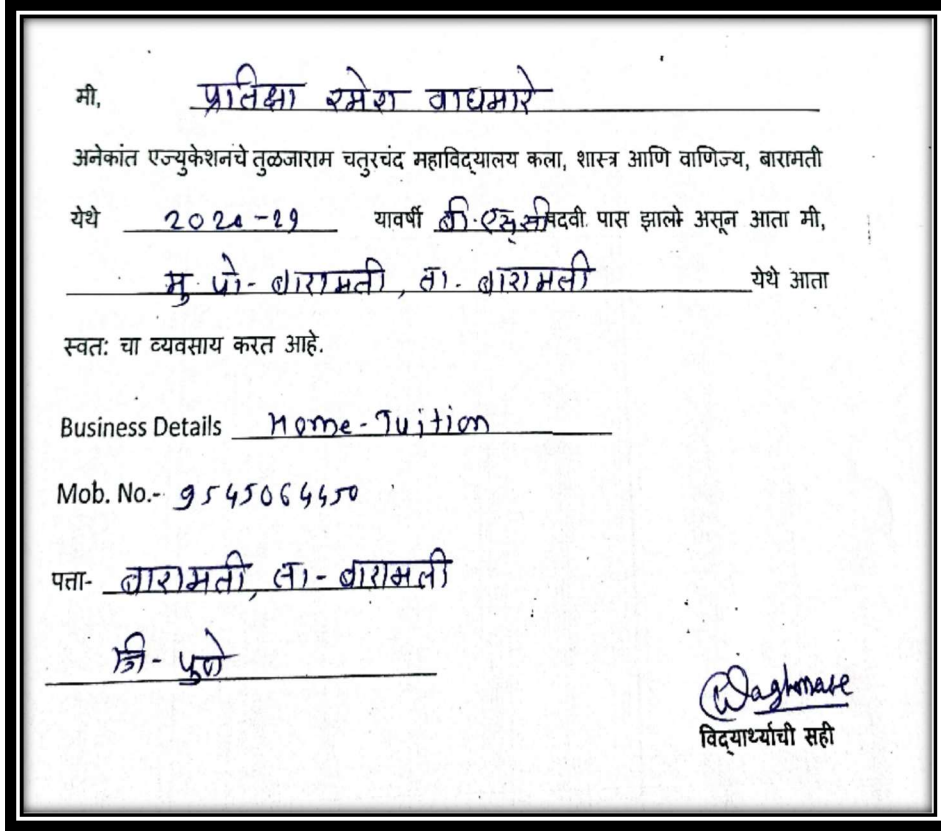 मी, प्रतिक्षा रमेश वाघमारे
अनेकांत एज्युकेशनचे तुळजाराम चतुरचंद महाविद्यालय कला, शास्त्र आणि वाणिज्य, बारामती
येथे 2020-21 यावर्षी बी.एस्.सी पदवी पास झाले असून आता मी,
मु. पो- बारामती, ता- बारामती येथे आता
स्वत: चा व्यवसाय करत आहे.
Business Details Home-Tuition
Mob. No.- 9545064450
पत्ता- बारामती, ता- बारामती
जि- पुणे
Waghmare
विद्यार्थ्याची सही